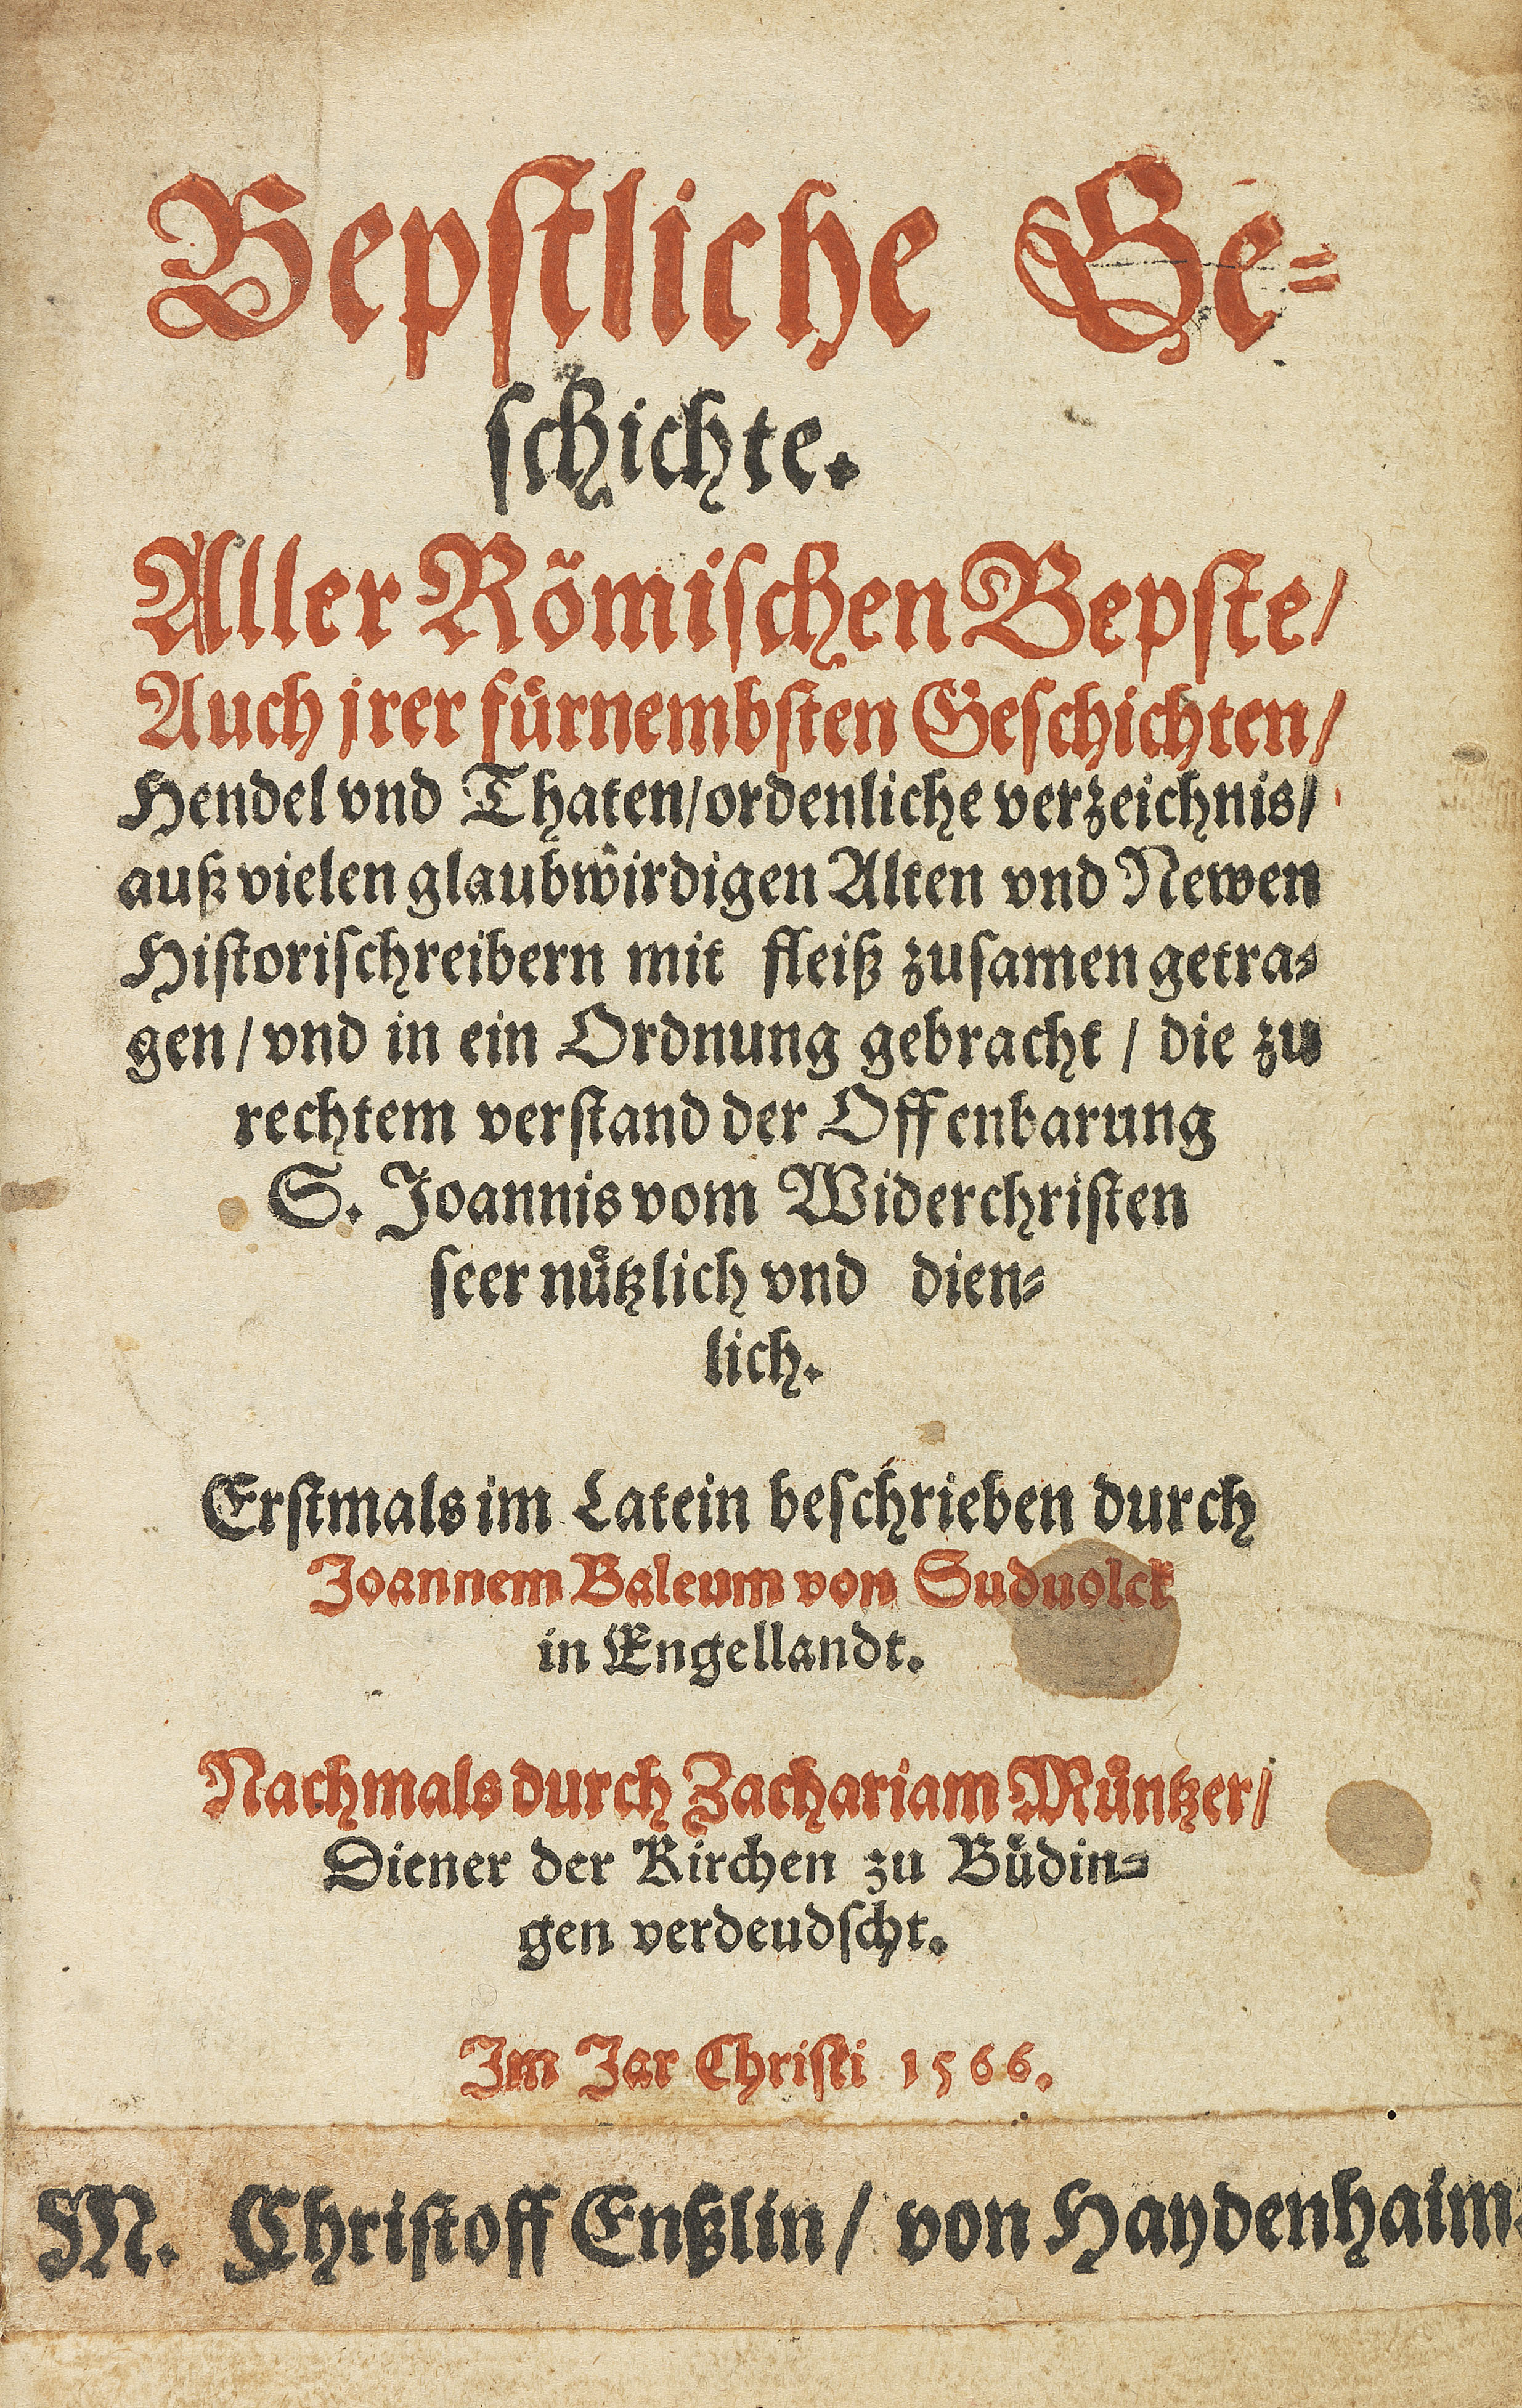 Bepstliche Ge=
schichte.
Aller Römischen Bepste/
Auch jrer fuͤrnembsten Geschichten/
Hendel vnd Thaten/ordenliche verzeichnis/
auß vielen glaubwirdigen Alten vnd Newen
Historischreibern mit fleiß zusamen getra=
gen/vnd in ein Ordnung gebracht / die zu
rechtem verstand der Offenbarung
S. Joannis vom Widerchristen
seer nuͤtzlich vnd dien=
lich.
Erstmals im Latein beschrieben durch
Joannem Baleum von Suduolck
in Engellandt.
Nachmals durch Zachariam Muͤntzer/
Diener der Kirchen zu Buͤdin=
gen verdeudscht.
Im Jar Christi 1566.
M. Christoff Enßlin/ von Haydenhaim.